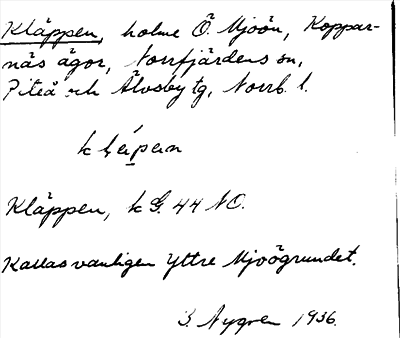 Kläppen, holme Ö. Mjoön, Koppar-
näs ägor, Norrfjärdens sn,
Piteå och Älvsby tg, Norrb. l.
Kläppen, k G. 44 NO.
Kallas vanligen Yttre Mjoögrundet.
Nygren 1936.